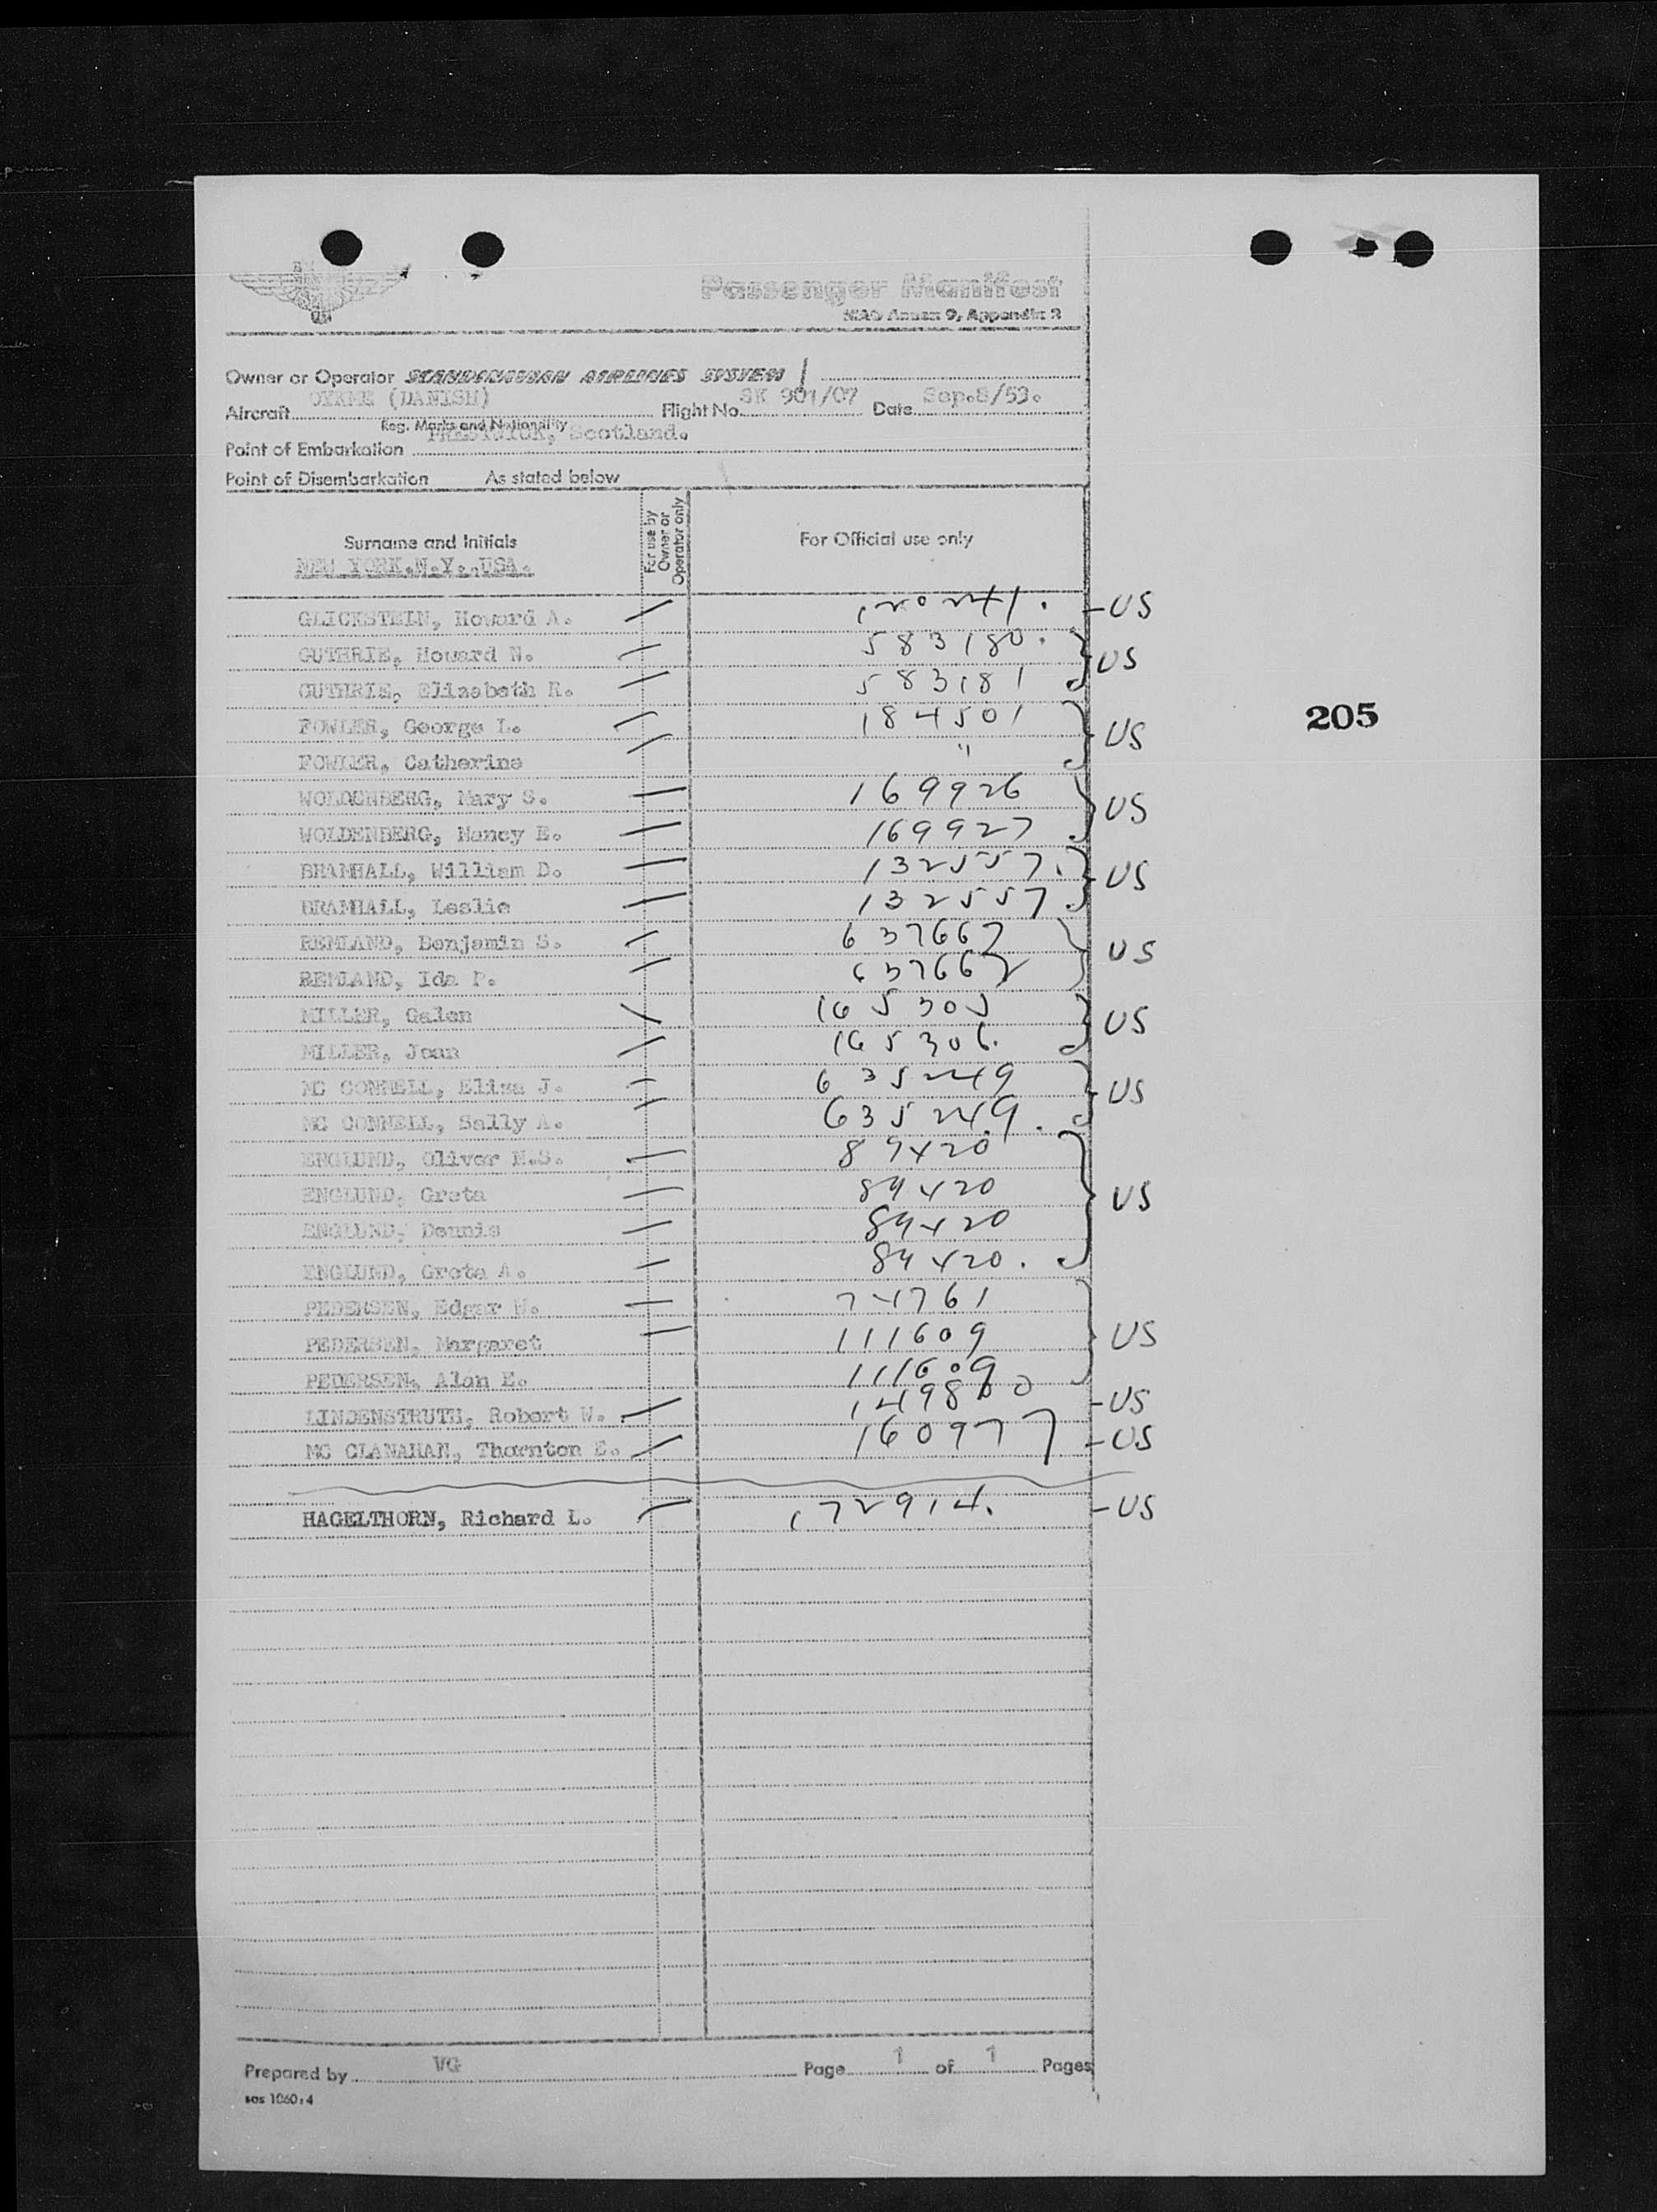 Passenger Manifest
ICAO Annex 9, Appendix 3
Owner or Operator SCANDINAVIAN AIRLINES SYSTEM
Aircraft (DANISH) Flight No. SK 901/07 Date Sep.8/53.
Reg. Marks and Nationality
Point of Embarkation PRESTWICK, Scotland.
Point of Disembarkation As stated below
Surname and Initials
For use by Owner or Operator only
For Official use only
NEW YORK.N.Y.,USA.
GLICKSTEIN, Howard A. US
GUTHRIE, Howard N. 583180. US
GUTHRIE, Elizabeth R. 583181
205
FOWLER, George L. 184501 US
FOWLER, Catherine "
WOLDENBERG, Mary S. 169926 US
WOLDENBERG, Nancy E. 169927
BRAMHALL, William D. 132557. US
BRAMHALL, Leslie 132557.
REMLAND, Benjamin S. US
REMLAND, Ida P. 637662
MILLER, Galen 165305 US
MILLER, Joan 165306.
MC CONNELL, Eliza J. 635249 US
MC CONNELL, Sally A. 635249.
ENGLUND, Oliver N.S. 89420 US
ENGLUND, Greta 89420
ENGLUND, Dennis 89420
ENGLUND, Greta A. 89420.
PEDERSEN, Edgar 74761
PEDERSEN, Margaret 111609 US
PEDERSEN, Alan E. 111609
LINDENSTRUTH, Robert W. 149800 US
MC CLANAHAN, Thornton E. 160977 US
HAGELTHORN, Richard L. 172914. US
Prepared by VG Page 1 of 1 Pages
sas 1060:4